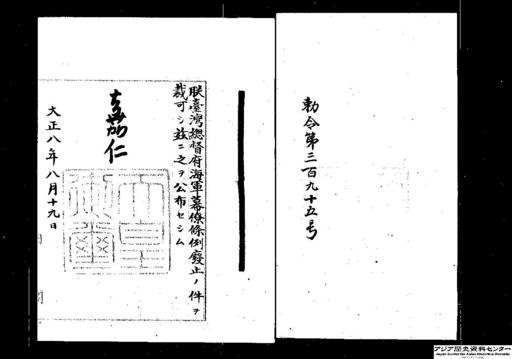 勅令第三百九十五号
朕臺灣總督府海軍幕僚條例廢止ノ件ヲ
裁可シ玆ニ之ヲ公布セシム
嘉仁
大正八年八月十九日
アジア歴史資料センター
Japan Center for Asian Historical Records